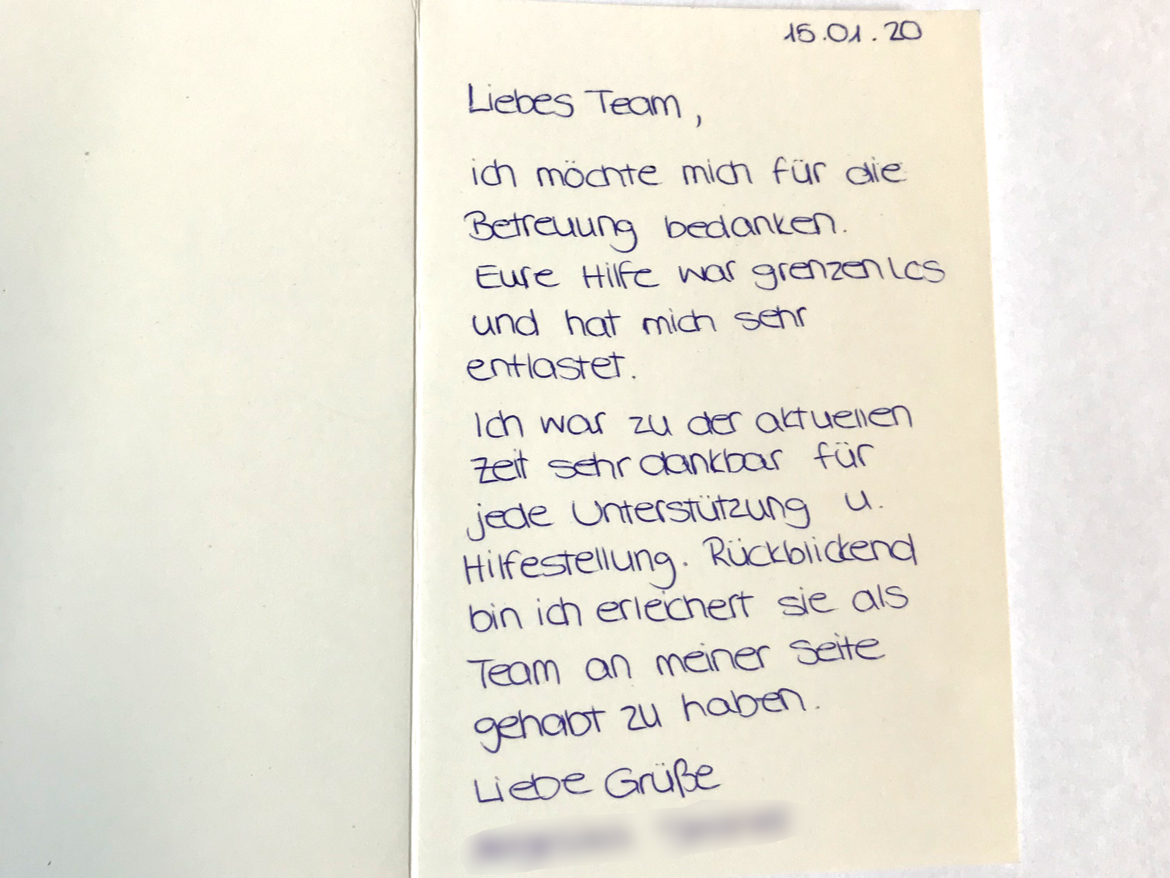 15.01.20
Liebes Team,
ich möchte mich für die
Betreuung bedanken.
Eure Hilfe war grenzenlos
und hat mich sehr
entlastet.
Ich war zu der aktuellen
Zeit sehr dankbar für
jede Unterstützung u.
Hilfestellung. Rückblickend
bin ich erleichert sie als
Team an meiner Seite
gehabt zu haben.
Liebe Grüße